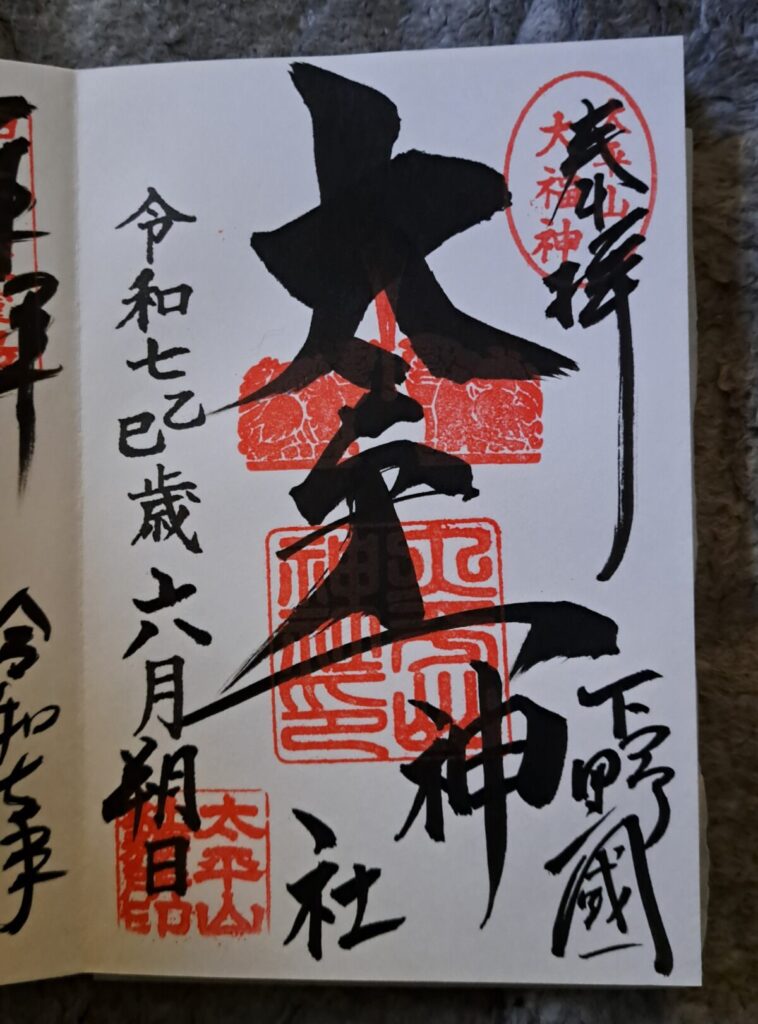 奉拝
太平山
大福神
下野國
太平山神社
太平山
神社印
令和七乙巳歳六月朔日
太平山
令和七年